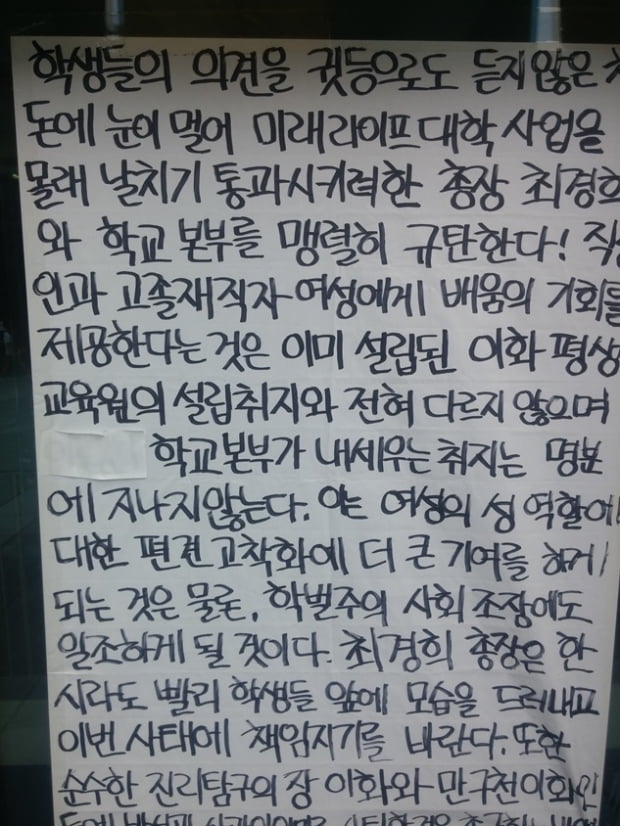 학생들의 의견을 귓등으로도 듣지않은
돈에 눈이 멀어 미래라이프대학 사업을
몰래 날치기 통과시키려한 총장 최경희
와 학교본부를 맹렬히 규탄한다! 직
인과 고졸재직자 여성에게 배움의 기회를
제공한다는 것은 이미 설립된 이화 평생
교육원의 설립취지와 전혀 다르지 않으며
학교본부가 내세우는 취지는 명분
에 지나지않는다. 이는 여성의 성 역할에
대한 편견 고착화에 더 큰 기여를 하게
되는 것은 물론, 학벌주의 사회 조장에도
일조하게 될 것이다. 최경희 총장은 한
시라도 빨리 학생들 앞에 모습을 드러내고
이번 사태에 책임지기를 바란다. 또한
순수한 진리탐구의 장 이화와 만구천이화인